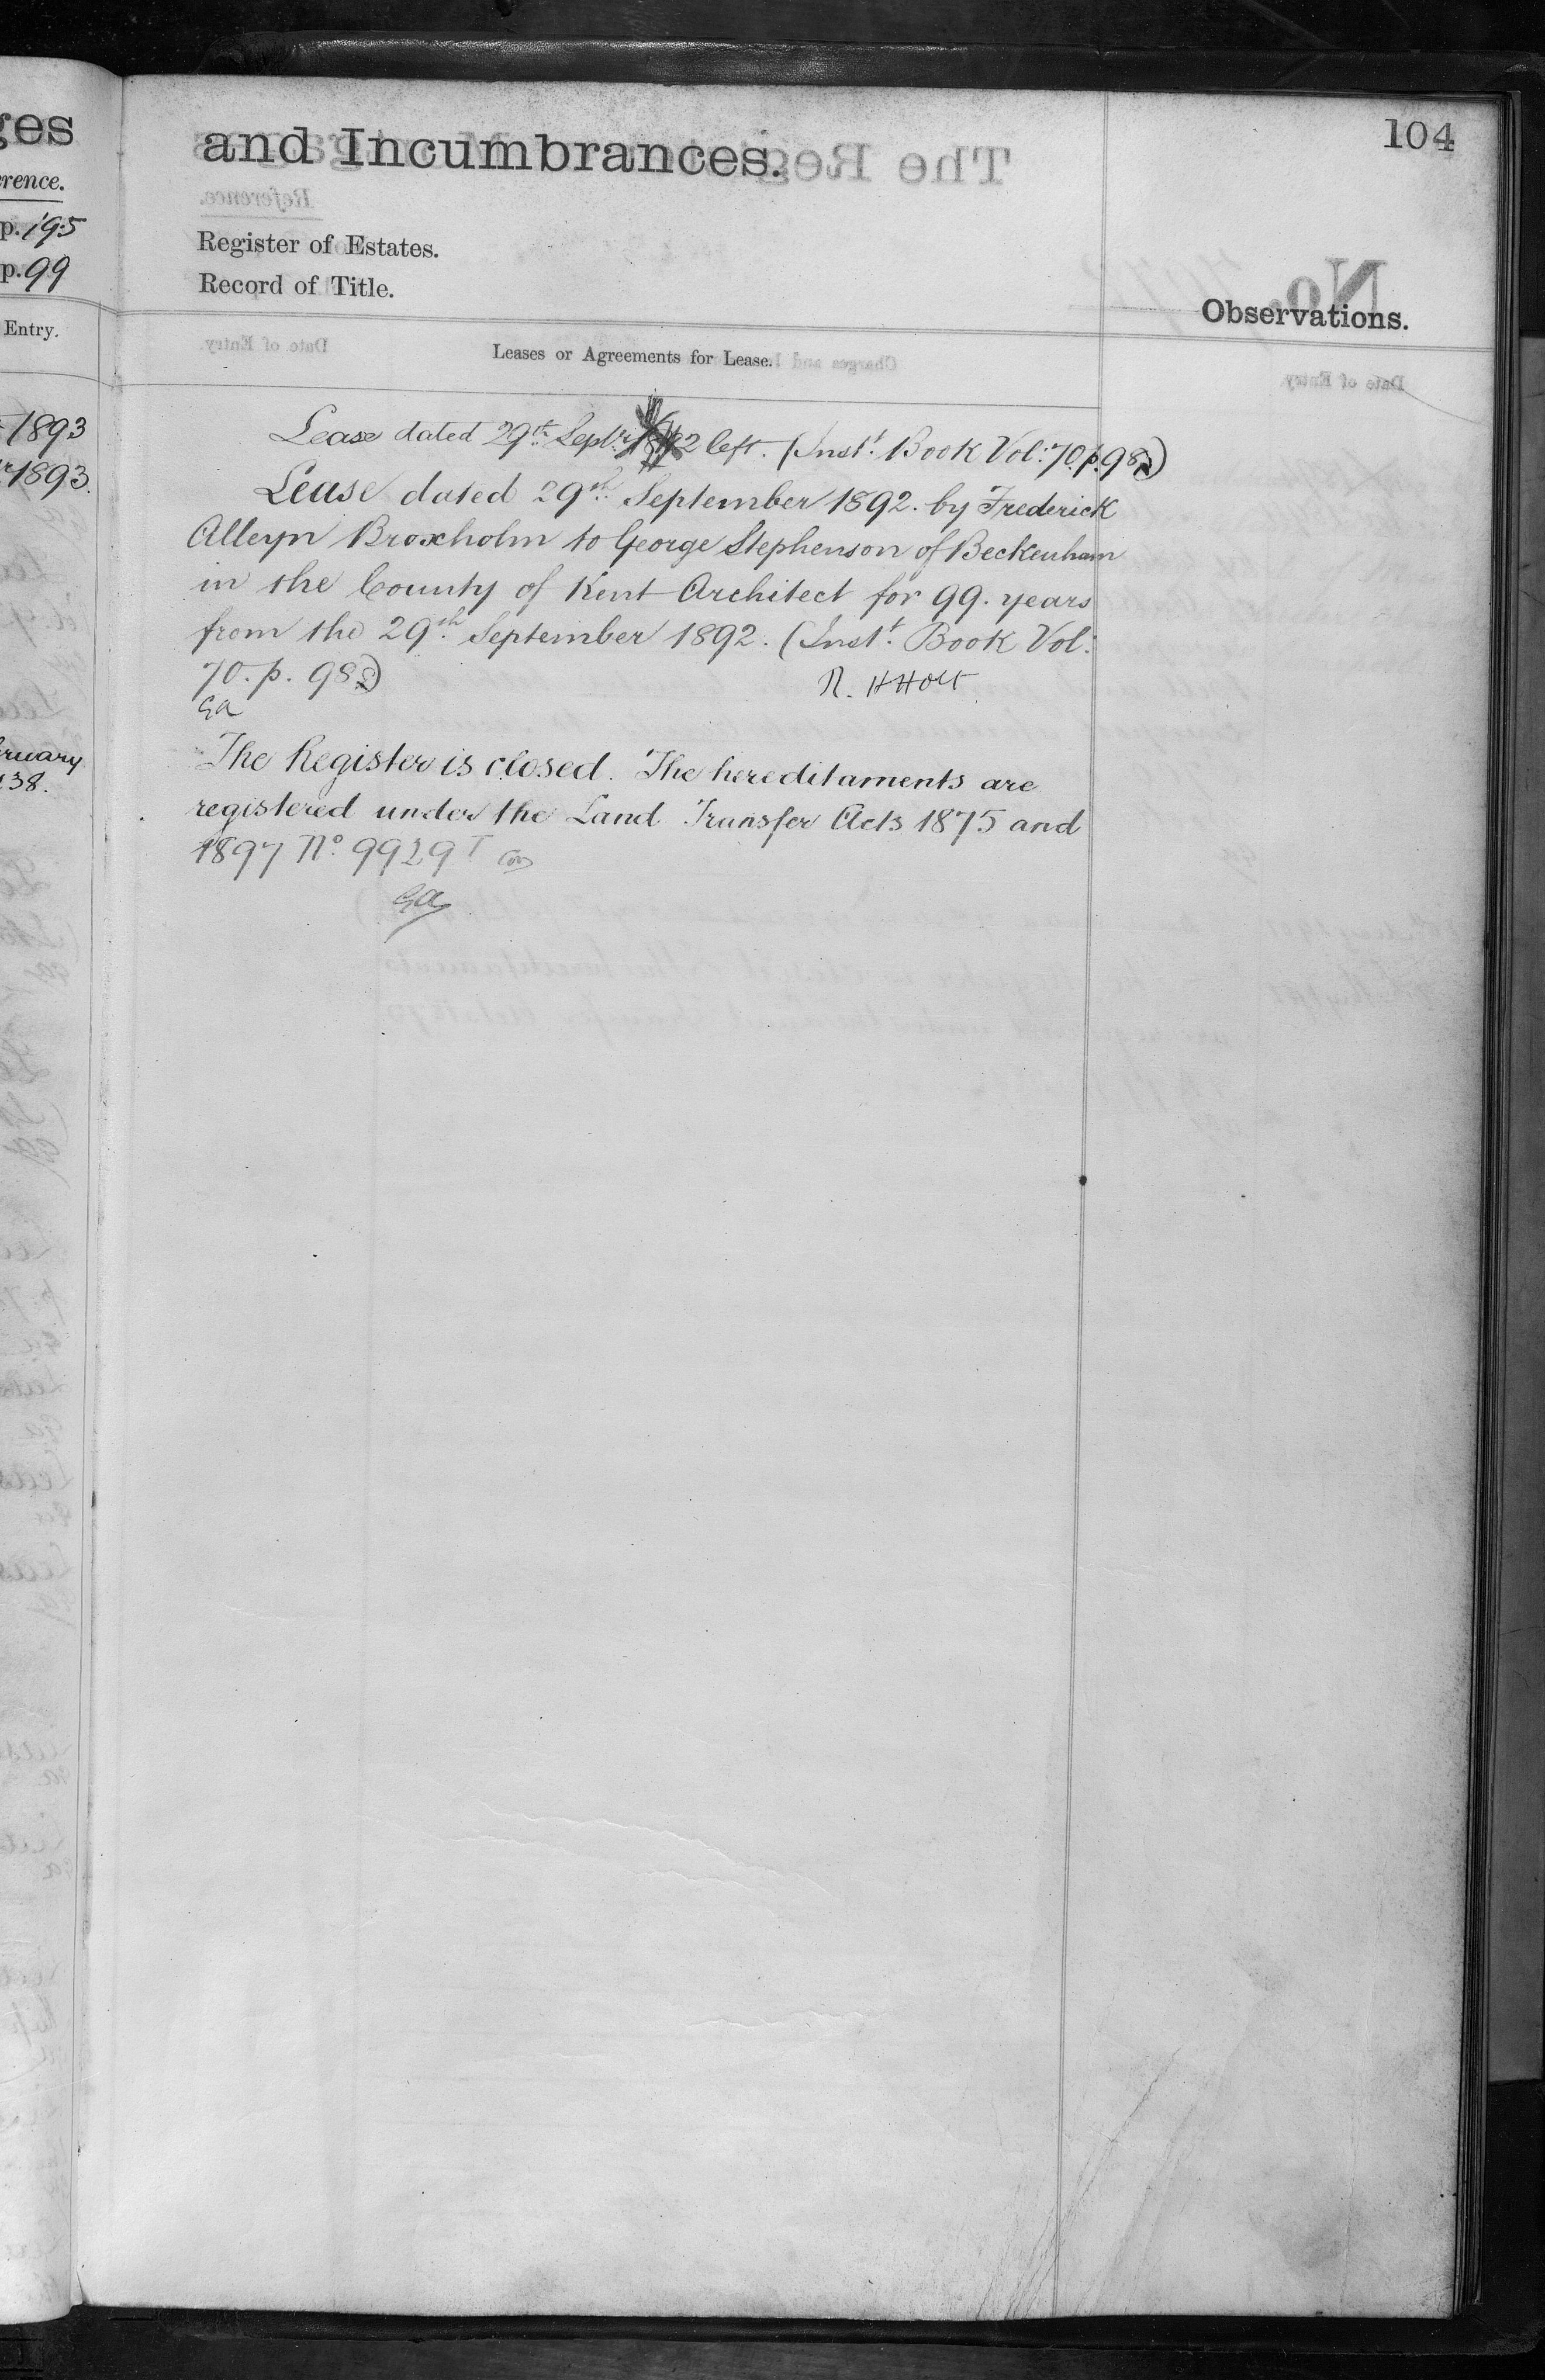 ges
rence.
p. 195
p. 99
Entry.
1893
1893.
ruary
138.
and Incumbrances.
104
Register of Estates.
Record of Title.
Observations.
Leases or Agreements for Lease.
Lease dated 29th Septr 1892 left. (Inst. Book Vol: 70. p. 98
Lease dated 29th September 1892. by Frederick
Alleyn Broxholm to George Stephenson of Beckenham
in the County of Kent Architect for 99. years
from the 29th September 1892. (Inst. Book Vol:
70. p. 98
R. H Holt
GA
The Register is closed. The hereditaments are
registered under the Land Transfer Acts 1875 and
1897 No. 9929
GA